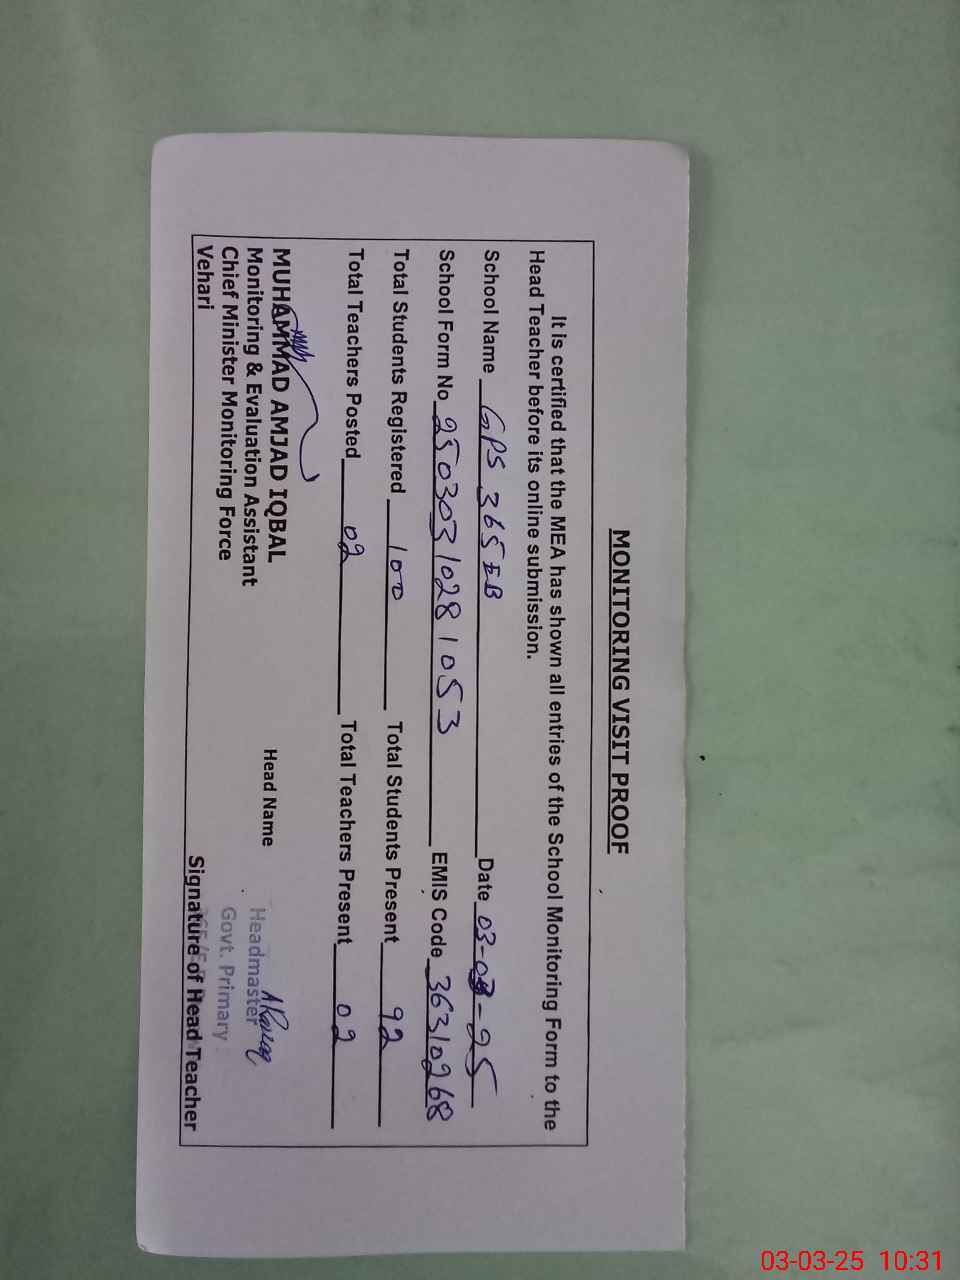 MONITORING VISIT PROOF
It is certified that the MEA has shown all entries of the School Monitoring Form to the
Head Teacher before its online submission.
School Name GPS 365 EB Date 03-03-25
School Form No 2503031028 1053 EMIS Code 36310268
Total Students Registered 100 Total Students Present 92
Total Teachers Posted 02 Total Teachers Present 02
MUHAMMAD AMJAD IQBAL
Monitoring & Evaluation Assistant
Chief Minister Monitoring Force
Vehari
Head Name
Headmaster
Govt. Primary
Signature of Head Teacher
03-03-25 10:31